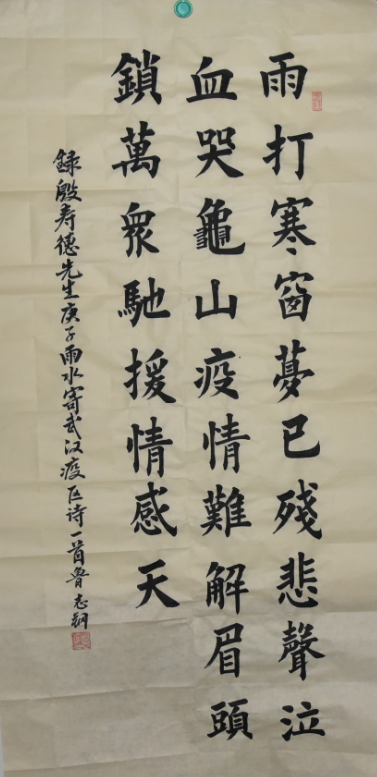 雨打寒窗夢已殘悲聲泣
血哭龜山疫情難解眉頭
鎖萬衆馳援情感天
録殷寿德先生庚子雨水寄武汉疫区诗一首鲁志